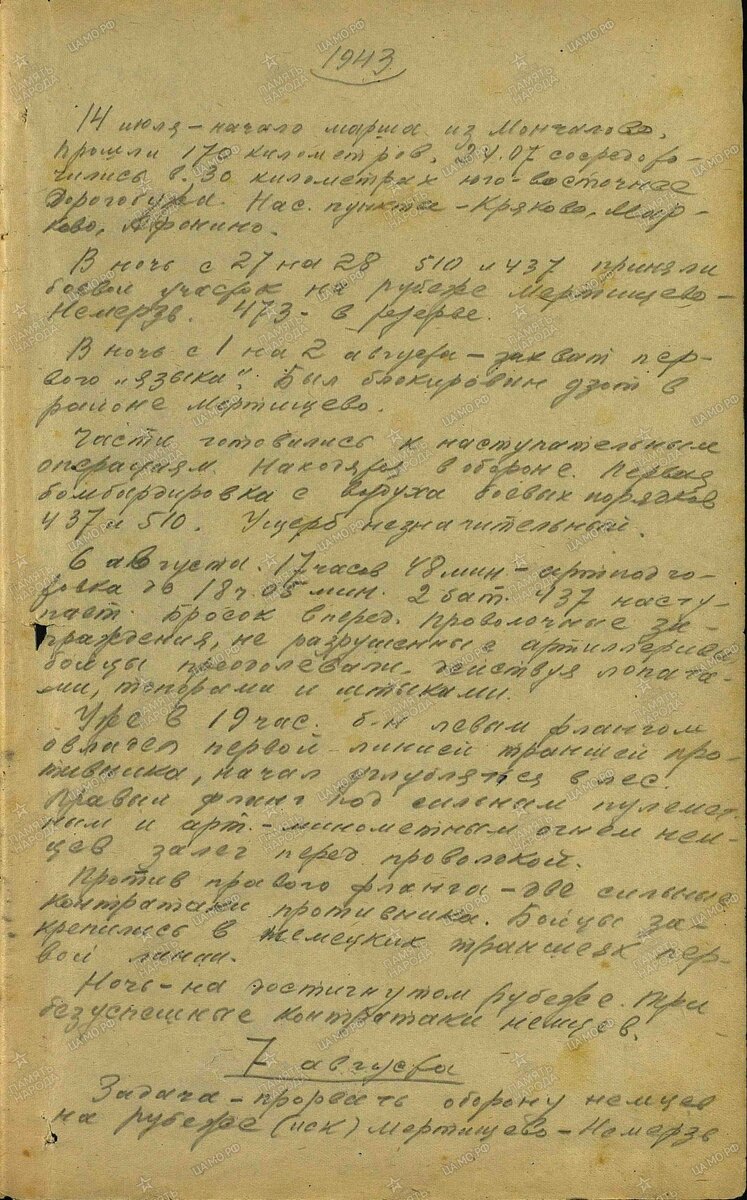 1943
14 июля – начало марша из Мончалово.
Прошли 170 километров. 24.07 сосредото-
чились в 30 километрах юго-восточнее
Дорогобужа. Нас. пункты – Кряково, Мар-
ково, Афонино.
В ночь с 27 на 28 510 и 437 приняли
боевой участок на рубеже Мертищево –
Немерзь. 473 – в резерве.
В ночь с 1 на 2 августа – захват пер-
вого „языка“. Был блокирован дзот в
районе Мертищево.
Части готовились к наступательным
операциям. Находятся в обороне. Первая
бомбардировка с воздуха боевых порядков
437 и 510. Ущерб незначительный.
6 августа. 17 часов 48 мин – артподго-
товка до 18 ч. 05 мин. 2 бат. 437 насту-
пает. Бросок вперед. Проволочные за-
граждения, не разрушенные артиллерией
бойцы преодолевали, действуя лопата-
ми, топорами и штыками.
Уже в 19 час. б-н левым флангом
овладел первой линией траншей про-
тивника, начал углубляться в лес.
Правый фланг под сильным пулемет-
ным и арт.-минометным огнем нем-
цев залег перед проволокой.
Против правого фланга – две сильные
контратаки противника. Бойцы за-
крепились в немецких траншеях пер-
вой линии.
Ночь – на достигнутом рубеже. При
безуспешные контратаки немцев.
7 августа
Задача – прорвать оборону немцев
на рубеже (иск) Мертищево – Немерзь